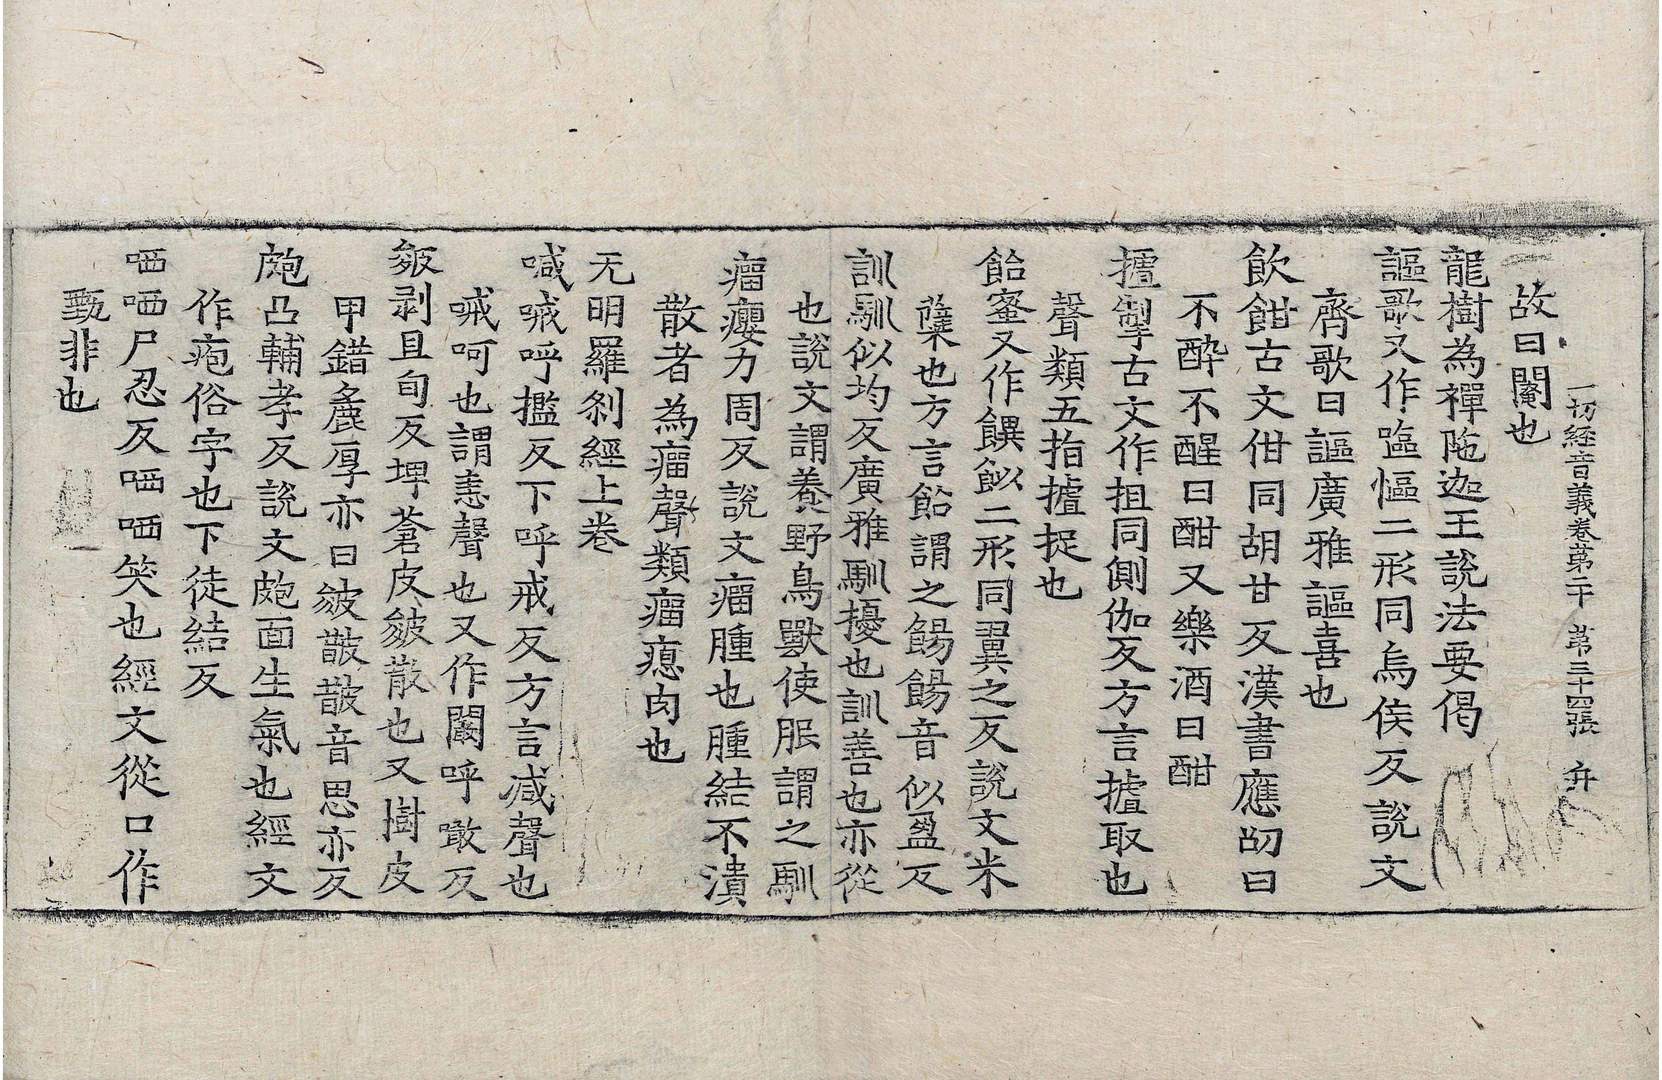 一切経音義卷第二十　第三十四張　弁
故曰閹也
龍樹為禪陁迦王說法要偈
謳歌又作嘔慪二形同烏侯反說文
齊歌曰謳廣雅謳喜也
飲酣古文佄同胡甘反漢書應劭曰
不醉不醒曰酣又樂酒曰酣
摣掣古文作抯同側伽反方言摣取也
聲類五指摣捉也
飴蜜又作饌飴二形同翼之反說文米
糱也方言飴謂之餳餳音似盈反
訓馴似均反廣雅馴擾也訓善也亦從
也說文謂養野鳥獸使服謂之馴
瘤癭力周反說文瘤腫也腫結不潰
散者為瘤聲類瘤瘜肉也
无明羅剎經上卷
喊㖑呼檻反下呼戒反方言喊聲也
㖑呵也謂恚聲也又作闞呼噉反
皴剥且旬反埤蒼皮皴散也又樹皮
甲錯麁厚亦曰皴皵皵音思亦反
皰凸輔孝反說文皰面生氣也經文
作疱俗字也下徒結反
哂哂尸忍反哂哂笑也經文從口作
甄非也